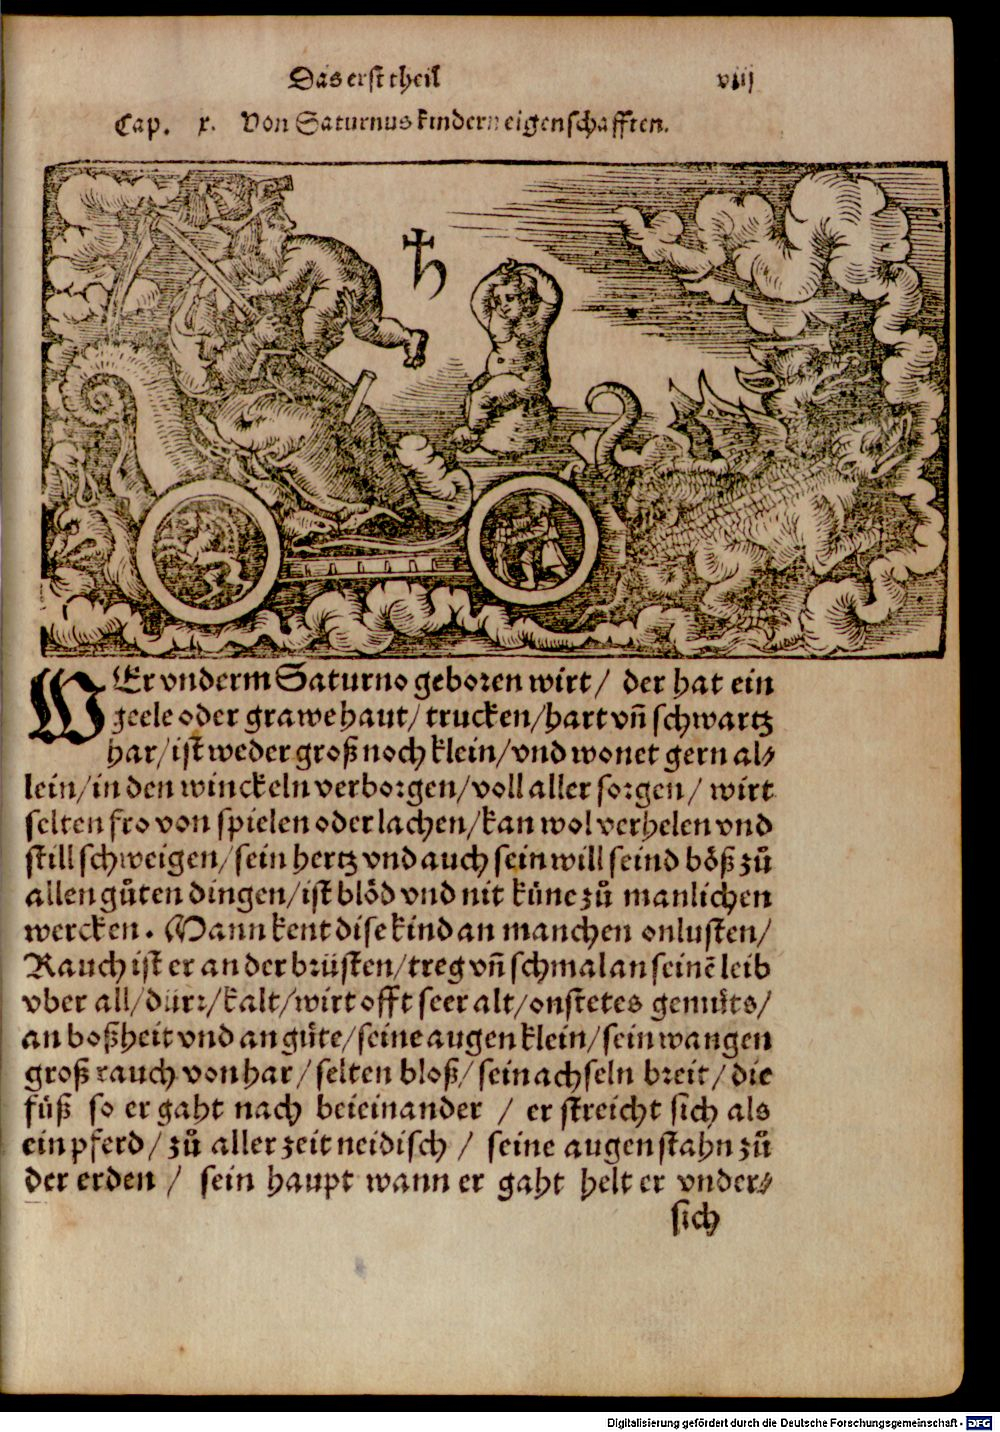 Das erst theil
viij
Cap. x. Von Saturnus kindern eigenschafften.
♄
WEr vnderm Saturno geboren wirt / der hat ein
geele oder grawe haut / trucken / hart vñ schwartz
har / ist weder groß noch klein / vnd wonet gern al⸗
lein / in den winckeln verborgen / voll aller sorgen / wirt
selten fro von spielen oder lachen / kan wol verhelen vnd
still schweigen / sein hertz vnd auch sein will seind böß zů
allen gůten dingen / ist blöd vnd nit küne zů manlichen
wercken. Mann kent dise kind an manchen onlusten /
Rauch ist er an der brüsten / treg vñ schmal an seinē leib
vber all / dürr / kalt / wirt offt seer alt / onstetes gemüts /
an boßheit vnd an güte / seine augen klein / sein wangen
groß rauch von har / selten bloß / sein achseln breit / die
füß so er gaht nach beieinander / er streicht sich als
ein pferd / zů aller zeit neidisch / seine augen stahn zů
der erden / sein haupt wann er gaht helt er vnder⸗
sich
Digitalisierung gefördert durch die Deutsche Forschungsgemeinschaft - DFG